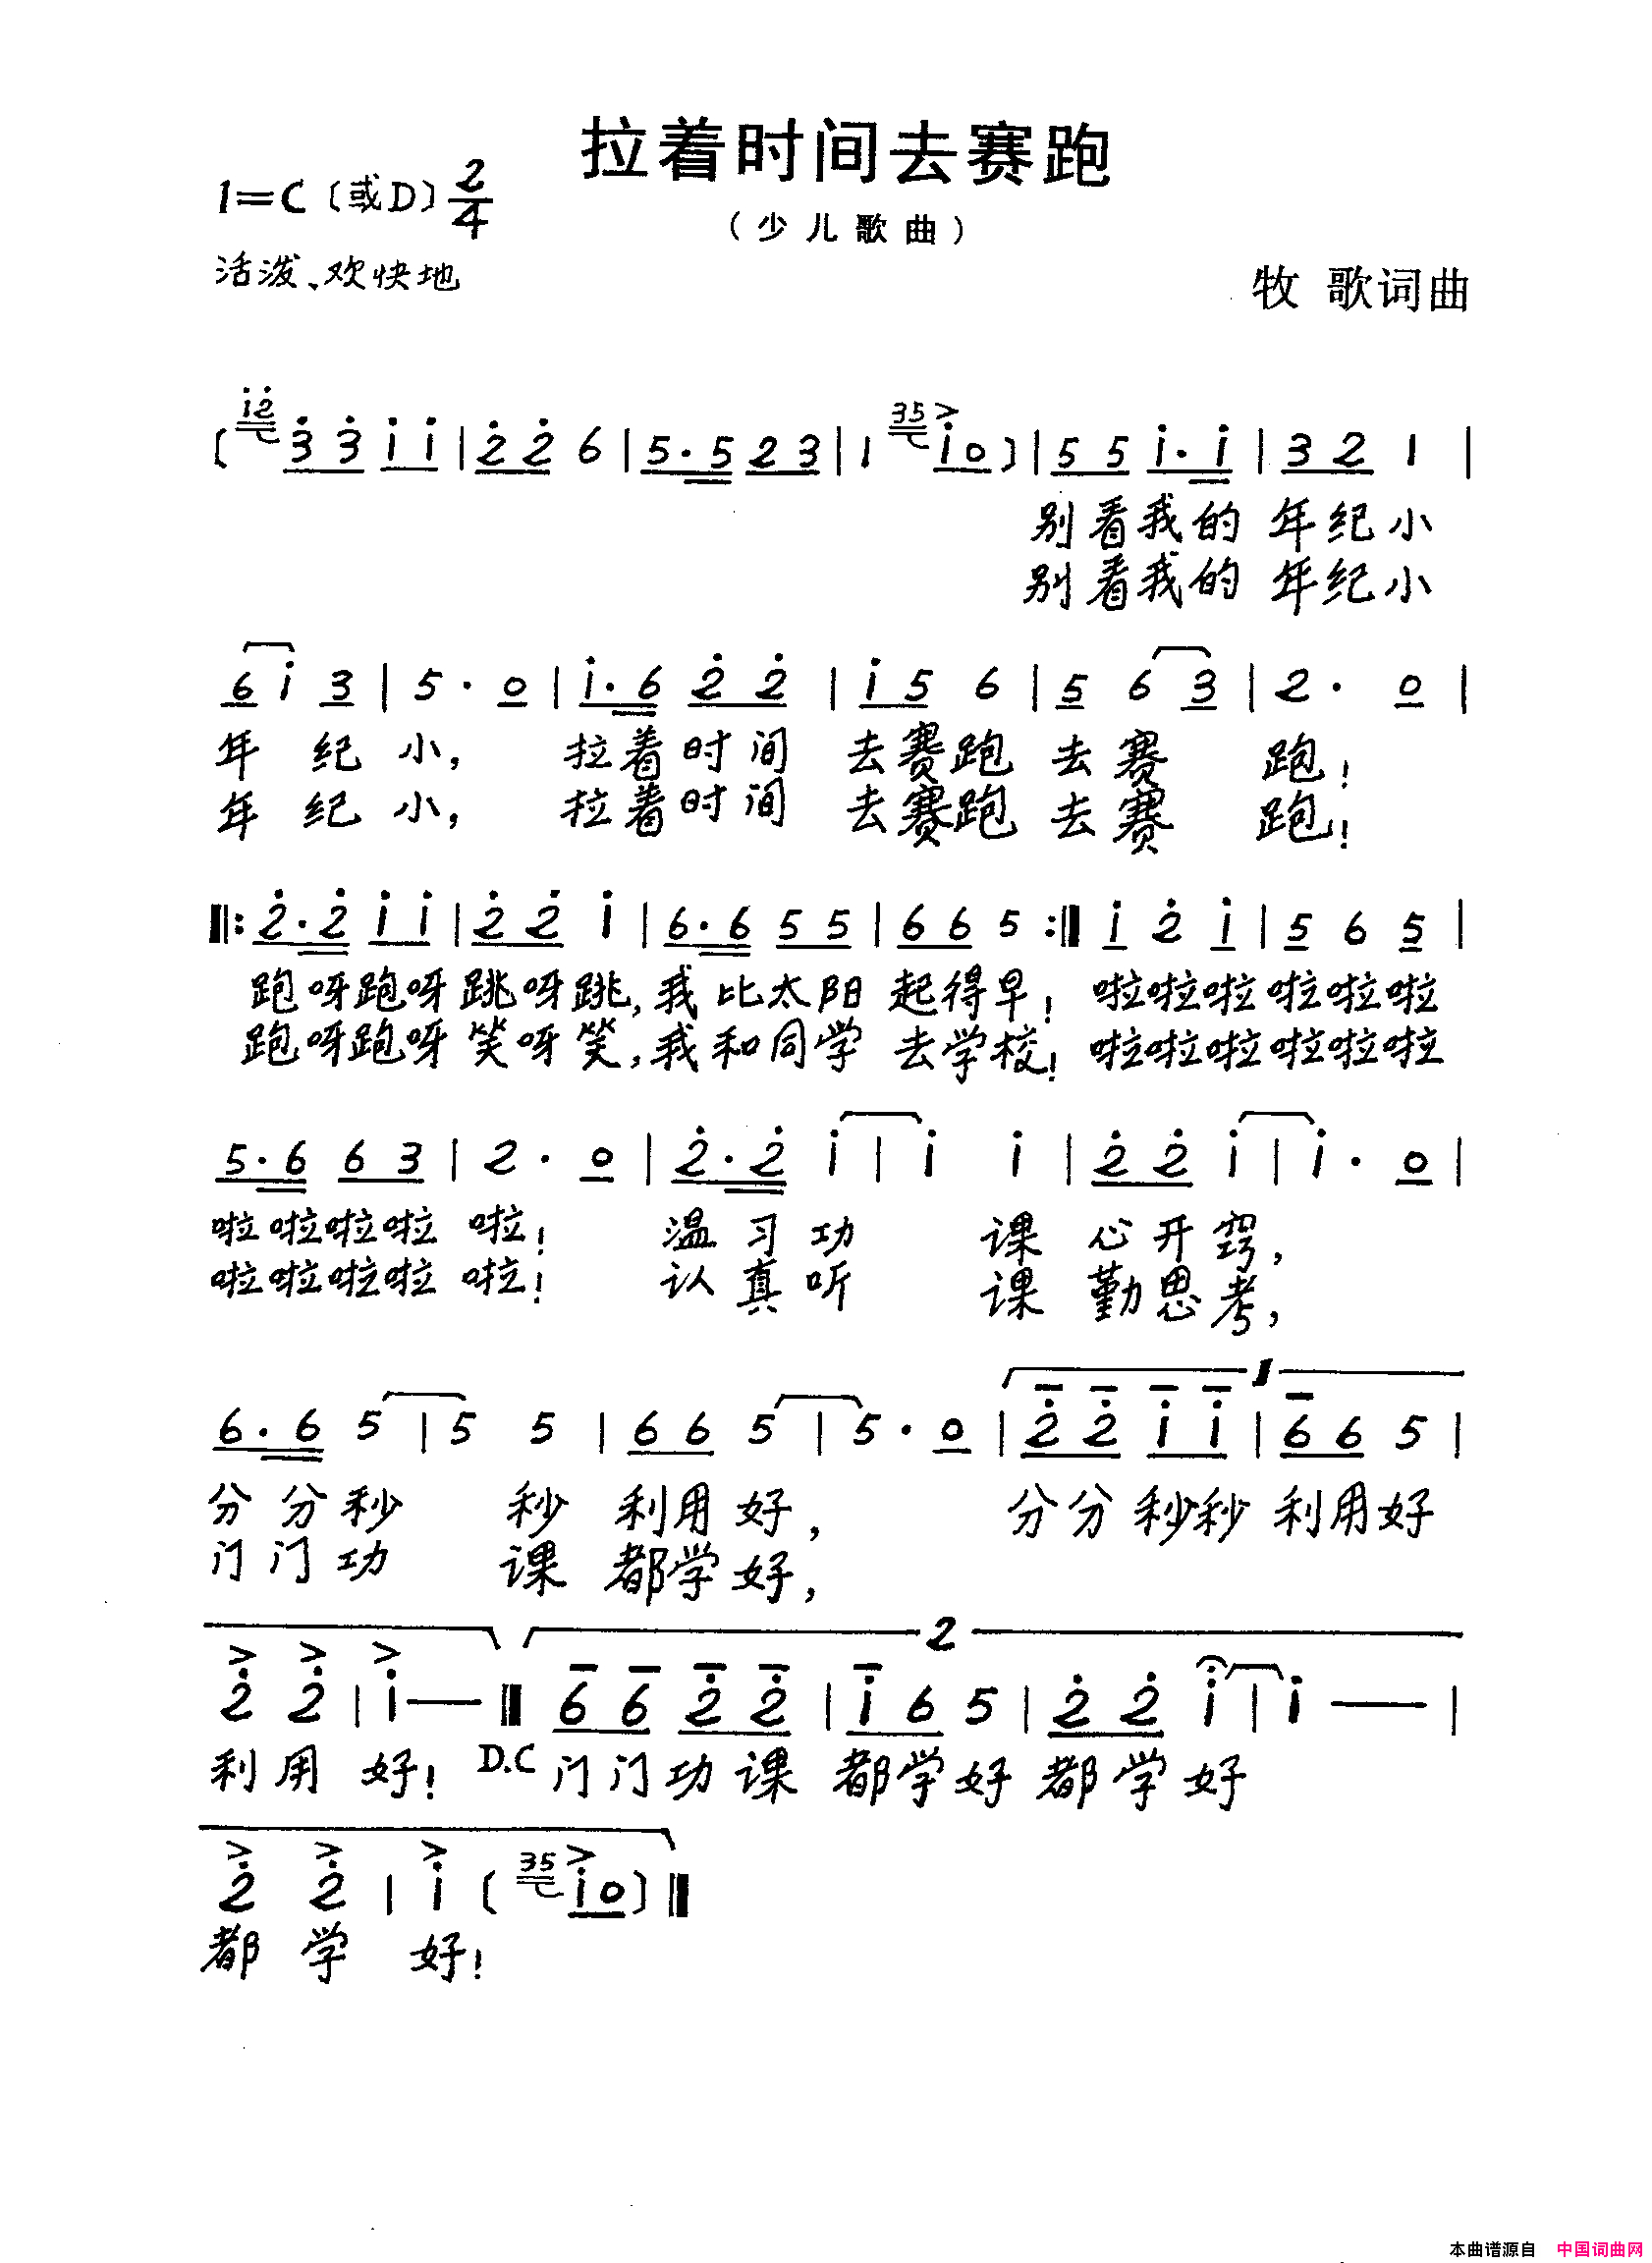 拉着时间去赛跑
1=C〔或D〕2/4
（少儿歌曲）
活泼、欢快地
牧 歌词曲
〔i̇2̇ 3̇ 3̇ i̇ i̇ | 2̇ 2̇ 6 | 5·5 2 3 | 1 35 i̇ 0〕| 5 5 i̇·i̇ | 3 2 1 |
别看我的 年纪小
别看我的 年纪小
6 i̇ 3 | 5· 0 | i̇·6 2̇ 2̇ | i̇ 5 6 | 5 6 3 | 2· 0 |
年 纪 小， 拉着时间 去赛跑 去赛 跑！
年 纪 小， 拉着时间 去赛跑 去赛 跑！
‖: 2̇·2̇ i̇ i̇ | 2̇ 2̇ i̇ | 6·6 5 5 | 6 6 5 :‖ i̇ 2̇ i̇ | 5 6 5 |
跑呀跑呀 跳呀跳，我比太阳 起得早！ 啦啦啦 啦啦啦
跑呀跑呀 笑呀笑，我和同学 去学校！ 啦啦啦 啦啦啦
5·6 6 3 | 2· 0 | 2̇·2̇ i̇ | i̇ i̇ | 2̇ 2̇ i̇ | i̇· 0 |
啦啦啦啦 啦！ 温习功 课 心开窍，
啦啦啦啦 啦！ 认真听 课 勤思考，
6·6 5 | 5 5 | 6 6 5 | 5· 0 | 1 2̇ 2̇ i̇ i̇ | 6 6 5 |
分分秒 秒 利用好， 分分秒秒 利用好
门门功 课 都学好，
2̇ 2̇ | i̇ — ‖ 2 6 6 2̇ 2̇ | i̇ 6 5 | 2̇ 2̇ i̇ | i̇ — |
利用 好！ D.C 门门功课 都学好 都学好
2̇ 2̇ | i̇ 〔35 i̇ 0〕‖
都 学 好！
本曲谱源自 中国词曲网